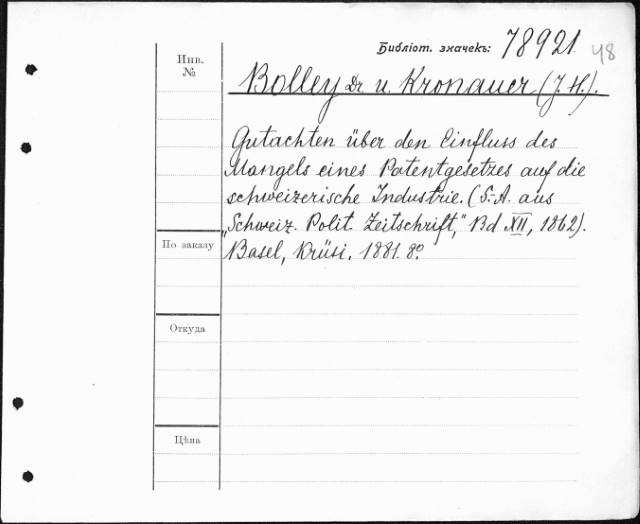 Библіот. значекъ: 78921. 48
Инв.
№
Bolley Dr u. Kronauer (J. H.).
Gutachten über den Einfluss des
Mangels eines Patentgesetzes auf die
schweizerische Industrie. (S.-A. aus
„Schweiz. Polit. Zeitschrift,“ Bd XII, 1862).
По заказу
Basel, Krüsi. 1881. 8º
Откуда
Цѣна